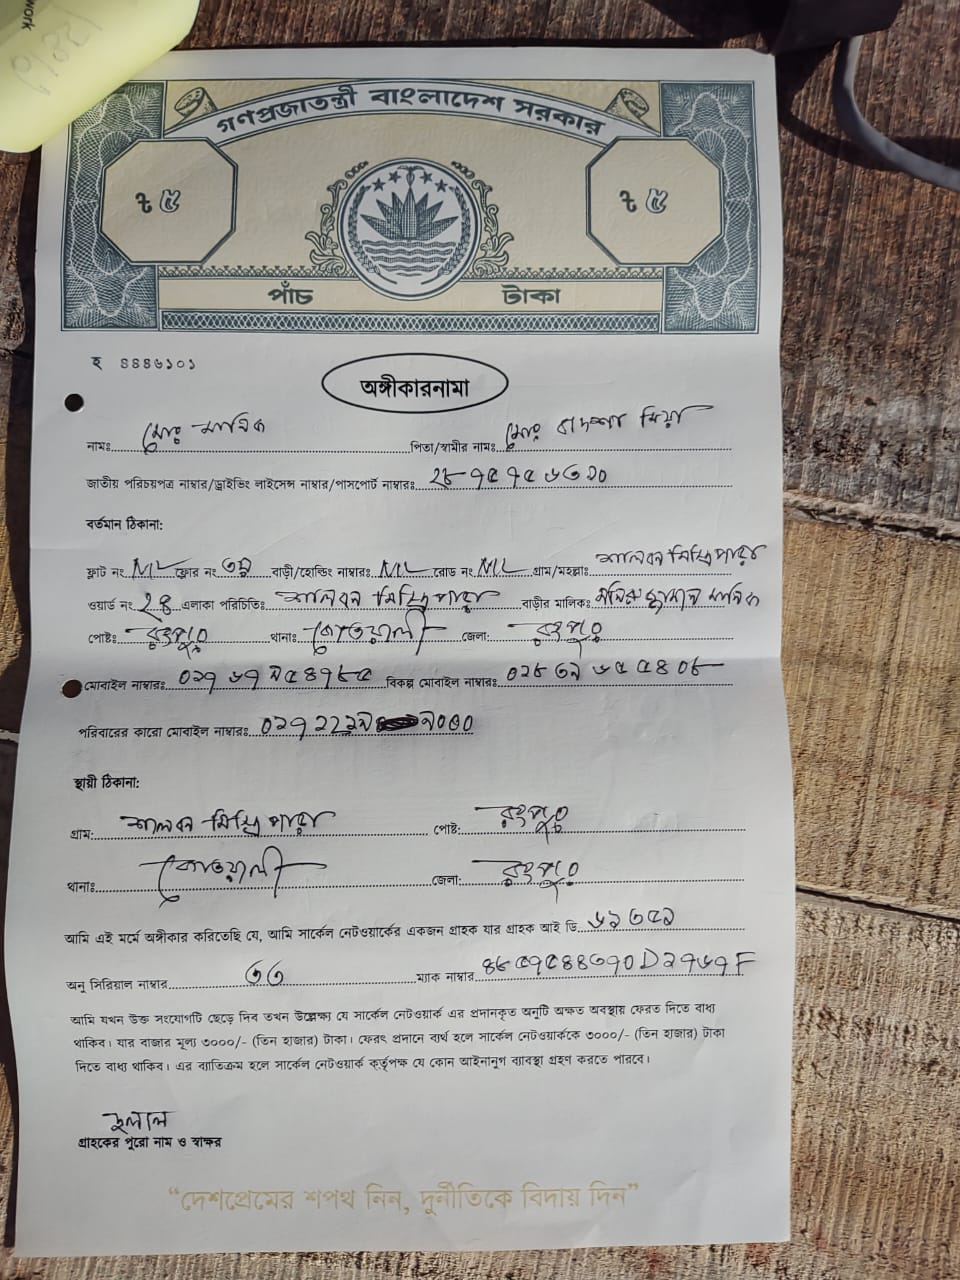 গণপ্রজাতন্ত্রী বাংলাদেশ সরকার
৳ ৫ ৳ ৫
পাঁচ টাকা
হ ৪৪৪৬১০১
অঙ্গীকারনামা
নামঃ মোঃ মানিক পিতা/স্বামীর নামঃ মোঃ বাদশা মিয়া
জাতীয় পরিচয়পত্র নাম্বার/ড্রাইভিং লাইসেন্স নাম্বার/পাসপোর্ট নাম্বারঃ
বর্তমান ঠিকানা:
ফ্লাট নং ফ্লোর নং ৩য় বাড়ী/হোল্ডিং নাম্বারঃ রোড নং গ্রাম/মহল্লাঃ শালবন মিস্ত্রিপাড়া
ওয়ার্ড নং ২৪ এলাকা পরিচিতিঃ শালবন মিস্ত্রিপাড়া বাড়ীর মালিকঃ মানিক
পোষ্টঃ রংপুর থানাঃ কোতয়ালী জেলা: রংপুর
মোবাইল নাম্বারঃ বিকল্প মোবাইল নাম্বারঃ
পরিবারের কারো মোবাইল নাম্বারঃ
স্থায়ী ঠিকানা:
গ্রাম: শালবন মিস্ত্রি পাড়া পোষ্ট: রংপুর
থানাঃ কোতয়ালী জেলা: রংপুর
আমি এই মর্মে অঙ্গীকার করিতেছি যে, আমি সার্কেল নেটওয়ার্কের একজন গ্রাহক যার গ্রাহক আই ডি
অনু সিরিয়াল নাম্বার ৩৩ ম্যাক নাম্বার
আমি যখন উক্ত সংযোগটি ছেড়ে দিব তখন উল্লেক্ষ্য যে সার্কেল নেটওয়ার্ক এর প্রদানকৃত অনুটি অক্ষত অবস্থায় ফেরত দিতে বাধ্য
থাকিব। যার বাজার মূল্য ৩০০০/- (তিন হাজার) টাকা। ফেরৎ প্রদানে ব্যর্থ হলে সার্কেল নেটওয়ার্ককে ৩০০০/- (তিন হাজার) টাকা
দিতে বাধ্য থাকিব। এর ব্যাতিক্রম হলে সার্কেল নেটওয়ার্ক কর্তৃপক্ষ যে কোন আইনানুগ ব্যাবস্থা গ্রহণ করতে পারবে।
দুলাল
গ্রাহকের পুরো নাম ও স্বাক্ষর
“দেশপ্রেমের শপথ নিন, দুর্নীতিকে বিদায় দিন”